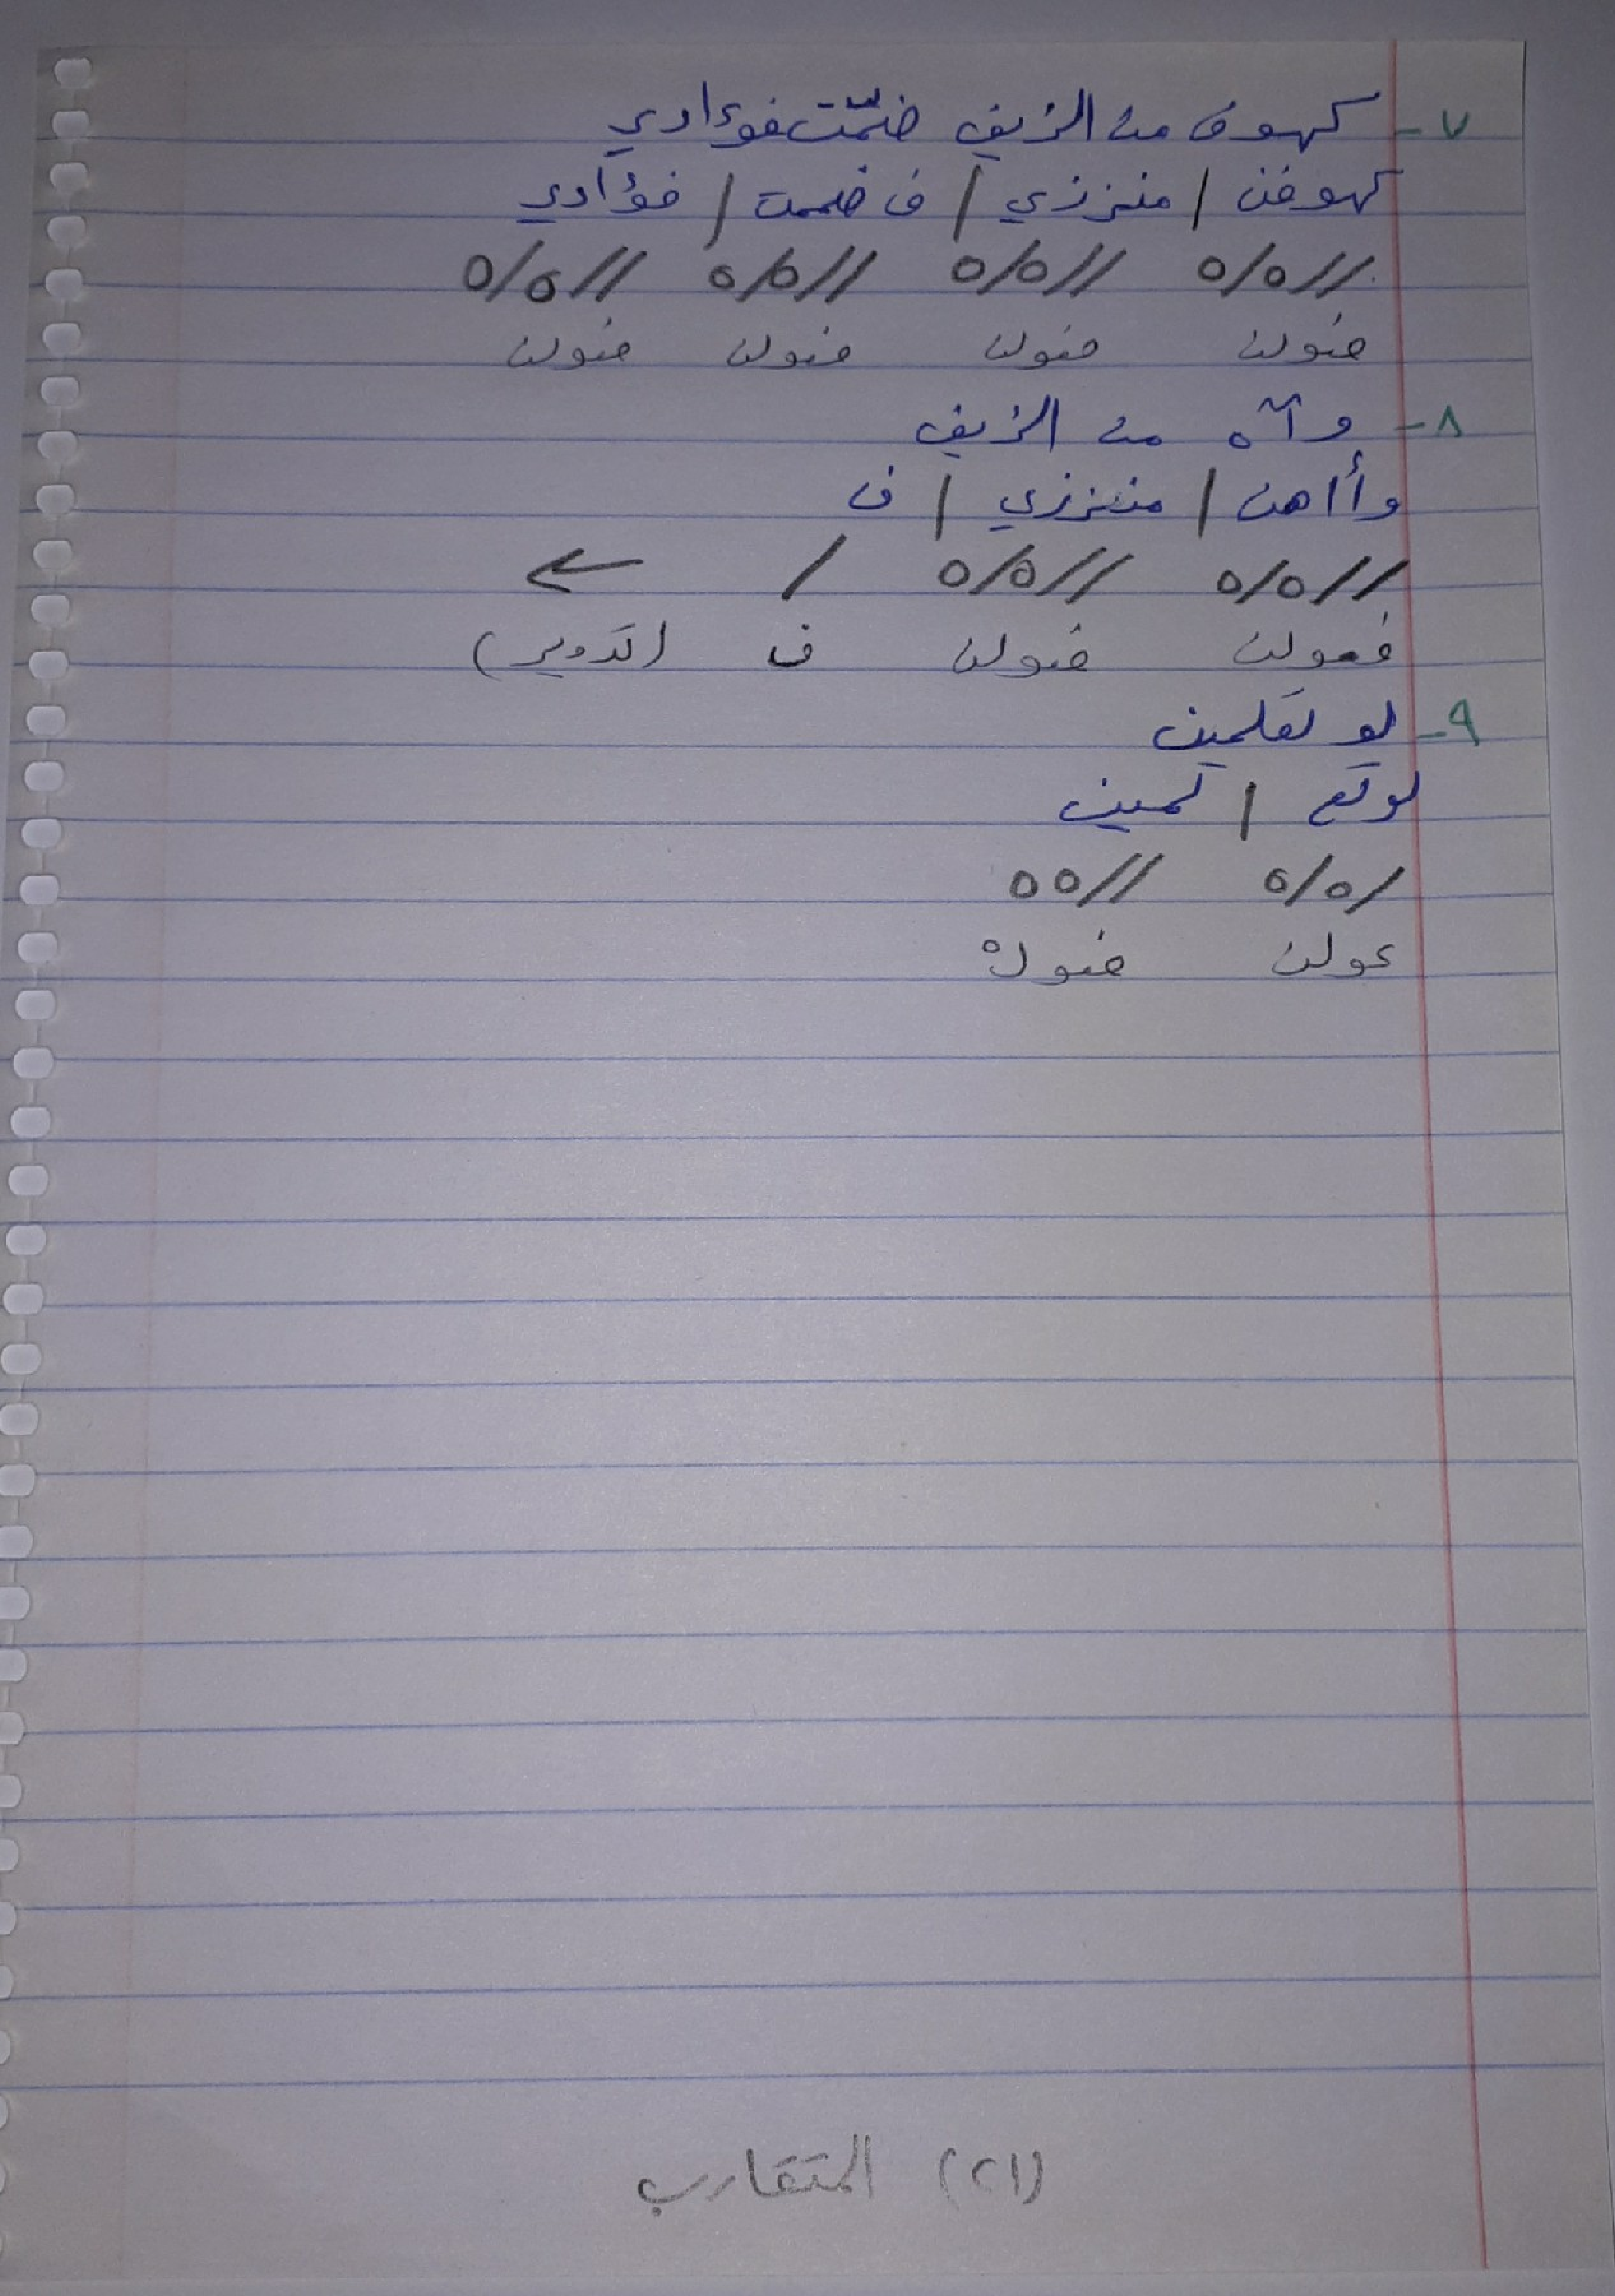 ٧- كهوف من الزيف ضمّت فؤادي
كهوفن / منززي / ف ضممت / فؤادي
//٥/٥ //٥/٥ //٥/٥ //٥/٥
فعولن فعولن فعولن فعولن
٨- وآه من الزيف
وأاهن / منززي / ف
//٥/٥ //٥/٥ / ←
فعولن فعولن ف (تدوير)
٩- لو تعلمين
لوتع / لمين
/٥/٥ //٥٥
عولن فعولْ
(٢١) المتقارب